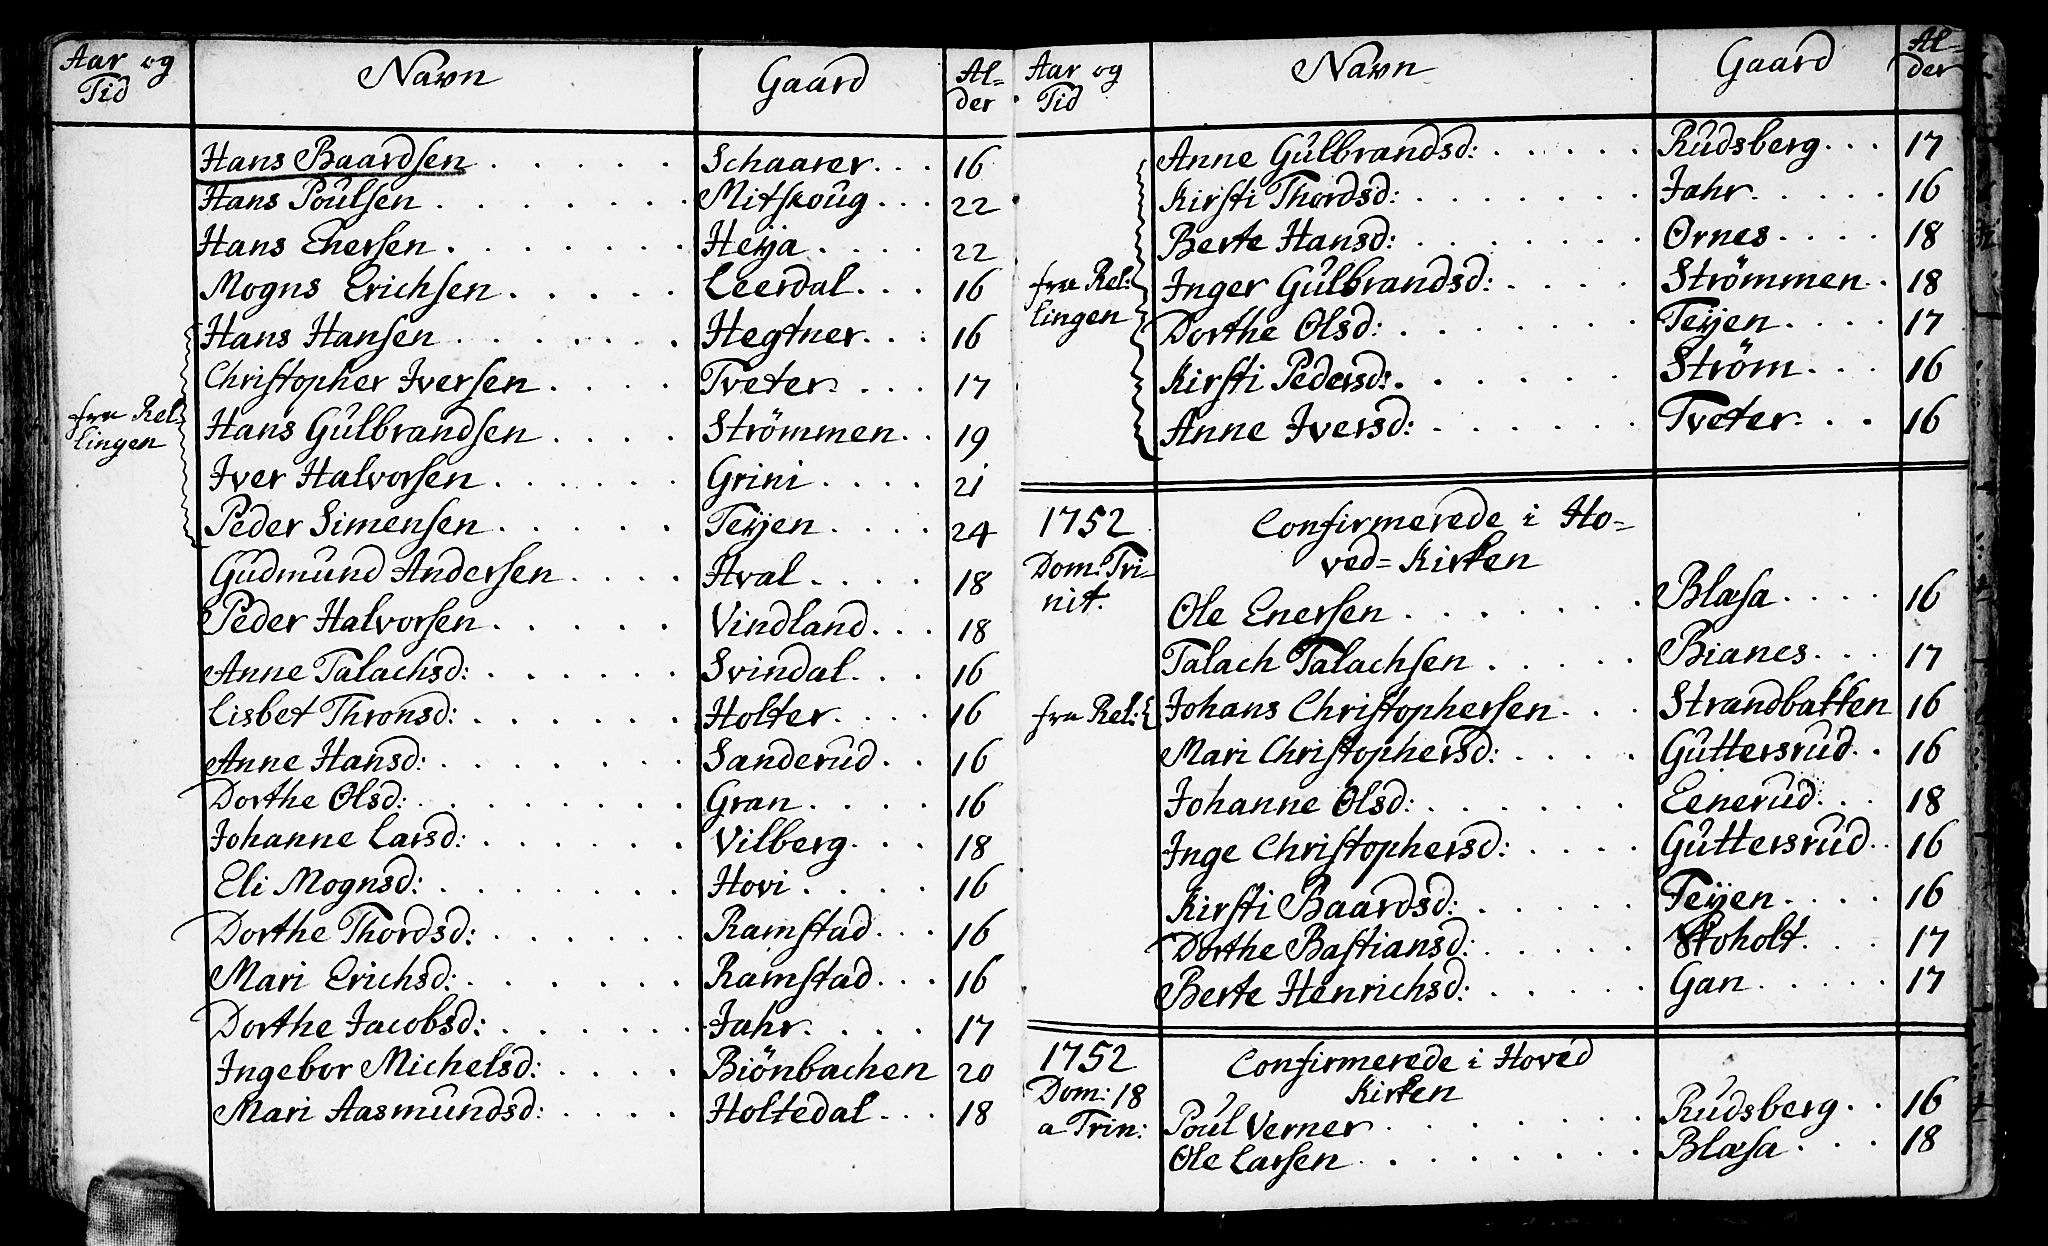 Aar og Tid | Navn | Gaard | Al-der
Hans Baardsen . . . . . Schaarer . . . 16
Hans Poulsen . . . . . . Mitskoug . . . 22
Hans Enersen . . . . . . Heija . . . . 22
Mogns Erichsen . . . . . Leerdal . . . 16
Hans Hansen . . . . . . Hegtner . . . 16
Christopher Iversen . . . . Tveter . . . 17
fra Rel-
lingen
Hans Gulbrandsen . . . . Strömmen . . 19
Iver Halvorsen . . . . . . Grini . . . . 21
Peder Simensen . . . . . Teijen . . . . 24
Gudmund Andersen . . . . Hval . . . . 18
Peder Halvorsen . . . . . Vindland . . . 18
Anne Talachsd: . . . . . . Svindal . . . 16
Lisbet Thronsd: . . . . . . Holter . . . . 16
Anne Hansd: . . . . . . . Sanderud . . 16
Dorthe Olsd: . . . . . . . Gran . . . . 16
Johanne Larsd: . . . . . . Vilberg . . . 18
Eli Mognsd: . . . . . . . Hovi . . . . 16
Dorthe Thordsd: . . . . . . Ramstad . . . 16
Mari Erichsd: . . . . . . Ramstad . . . 16
Dorthe Jacobsd: . . . . . . Jahr . . . . 17
Ingebor Michelsd: . . . . Biönbachen 20
Mari Aasmundsd: . . . . Holtedal . . . 18
Aar og Tid | Navn | Gaard | Al-der
Anne Gulbrandsd: . . . . . Rudsberg . . . 17
Kirsti Thordsd: . . . . . . Jahr . . . . . 16
Berte Hansd: . . . . . . . Ornes . . . . 18
fra Rel:
lingen
Inger Gulbrandsd: . . . . Strömmen . . 18
Dorthe Olsd: . . . . . . . Teijen . . . . 17
Kirsti Pedersd: . . . . . . Ström . . . 16
Anne Iversd: . . . . . . Tveter . . . 16
1752
Dom: Tri-
nit.
Confirmerede i Ho-
ved-Kirken
Ole Enersen . . . . . . . Blæsa . . . . 16
Talach Talachsen . . . . . Bianes . . . 17
fra Rel: Johans Christophersen . . . Strandbakken 16
Mari Christophersd: . . . . Guttersrud . . 16
Johanne Olsd: . . . . . . Eenerud . . . 18
Inge Christophersd: . . . . Guttersrud . . 16
Kirsti Baardsd: . . . . . Teijen . . . . 16
Dorthe Bastiansd: . . . . . 17
Berte Henrichsd: . . . . . Gan . . . . . 17
1752
Dom: 18
a Trin:
Confirmerede i Hoved
Kirken
Poul Verner . . . . . . . Rudsberg . . 16
Ole Larsen . . . . . . . . Blæsa . . . 18